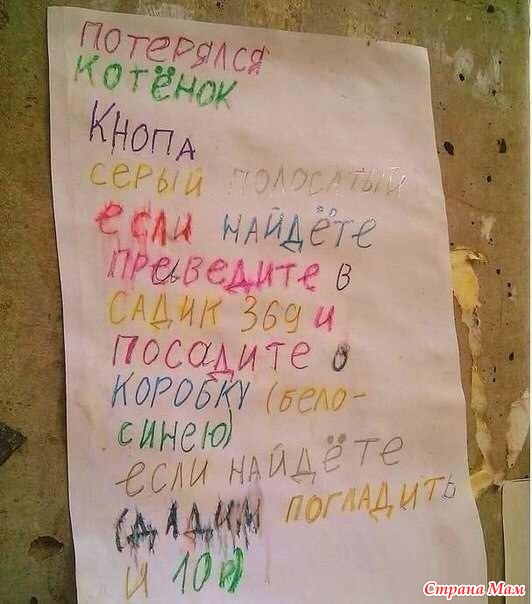 ПОТЕРЯЛСЯ
КОТЁНОК
КНОПА
СЕРЫЙ ПОЛОСАТЫЙ
если НАЙДЁТЕ
ПРЕВЕДИТЕ В
САДИК 369 и
ПОСАДИТЕ В
КОРОБКУ (бело-
синею)
если НАЙДЁТЕ
ДАДИМ ПОГЛАДИТЬ
и 10р
Страна Мам